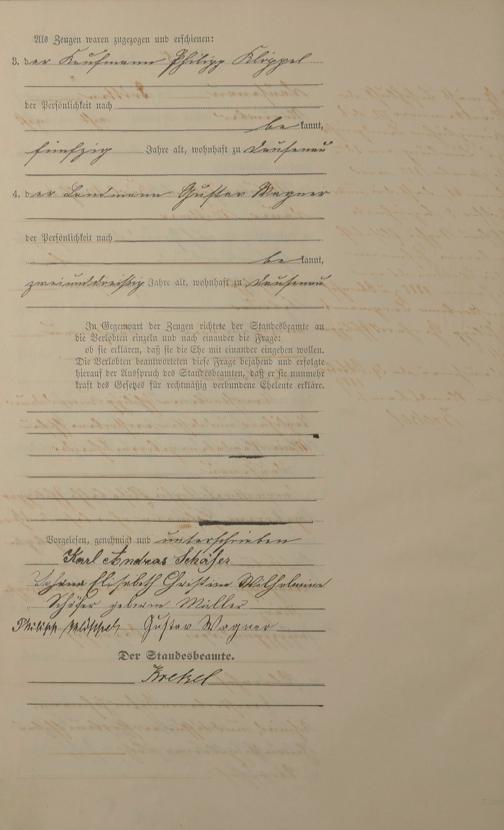 Als Zeugen waren zugezogen und erschienen:
3. der Kaufmann Philipp Klippel
der Persönlichkeit nach
be kannt,
fünfzig Jahre alt, wohnhaft zu Dausenau
4. der Landmann Gustav Wagner
der Persönlichkeit nach
be kannt,
zweiunddreißig Jahre alt, wohnhaft zu Dausenau
In Gegenwart der Zeugen richtete der Standesbeamte an
die Verlobten einzeln und nach einander die Frage:
ob sie erklären, daß sie die Ehe mit einander eingehen wollen.
Die Verlobten beantworteten diese Frage bejahend und erfolgte
hierauf der Ausspruch des Standesbeamten, daß er sie nunmehr
kraft des Gesetzes für rechtmäßig verbundene Eheleute erkläre.
Vorgelesen, genehmigt und unterschrieben
Karl Andreas Schäfer
Elisabeth Christiane Wilhelmine
Schäfer geborene Müller
Philipp Klippel Gustav Wagner
Der Standesbeamte.
Krekel